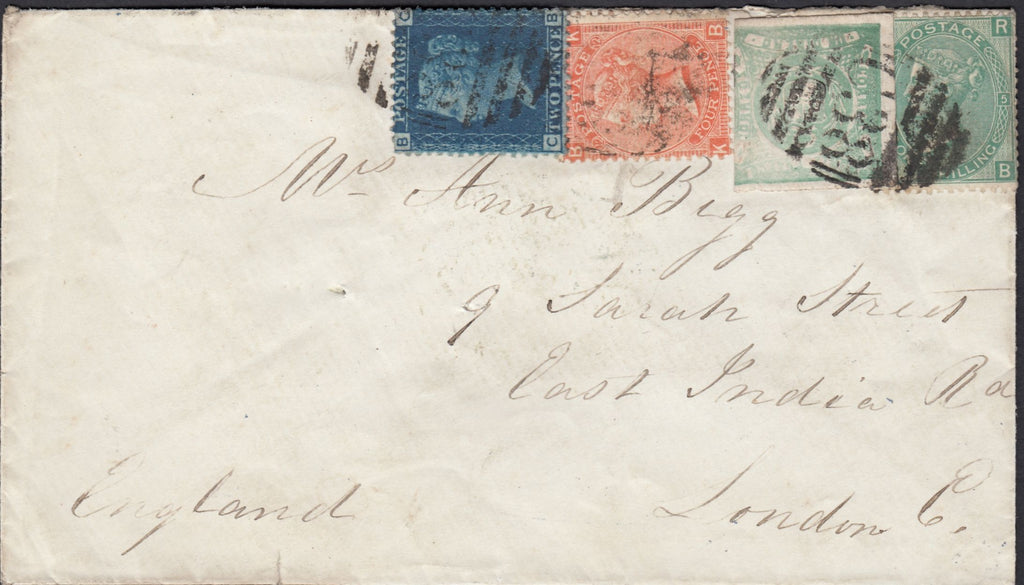 C B
POSTAGE
TWO PENCE
B C
K B
POSTAGE
FOUR PENCE
B K
R
POSTAGE
5
B
Mrs Ann Bigg
9 Sarah Street
East India Rd
London E.
England